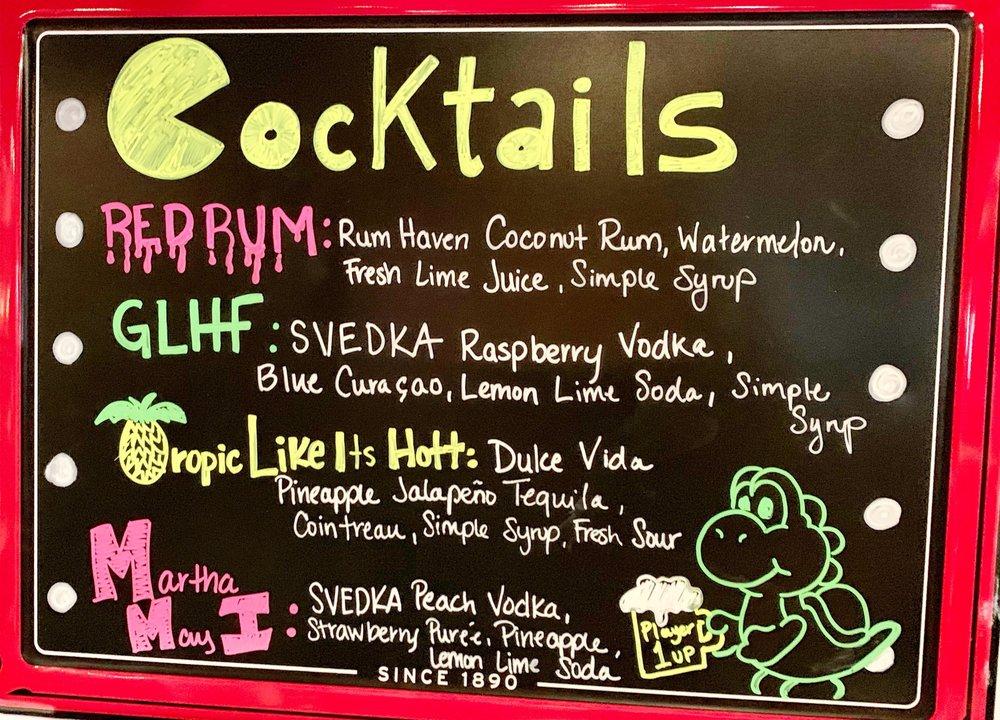 Cocktails
REDRUM: Rum Haven Coconut Rum, Watermelon,
Fresh Lime Juice, Simple Syrup
GLHF: SVEDKA Raspberry Vodka,
Blue Curaçao, Lemon Lime Soda, Simple
Syrup
Tropic Like Its Hott: Dulce Vida
Pineapple Jalapeño Tequila,
Cointreau, Simple Syrup, Fresh Sour
Martha
May I: SVEDKA Peach Vodka,
Strawberry Purée, Pineapple,
Lemon Lime Soda
Player
1 UP
SINCE 1890